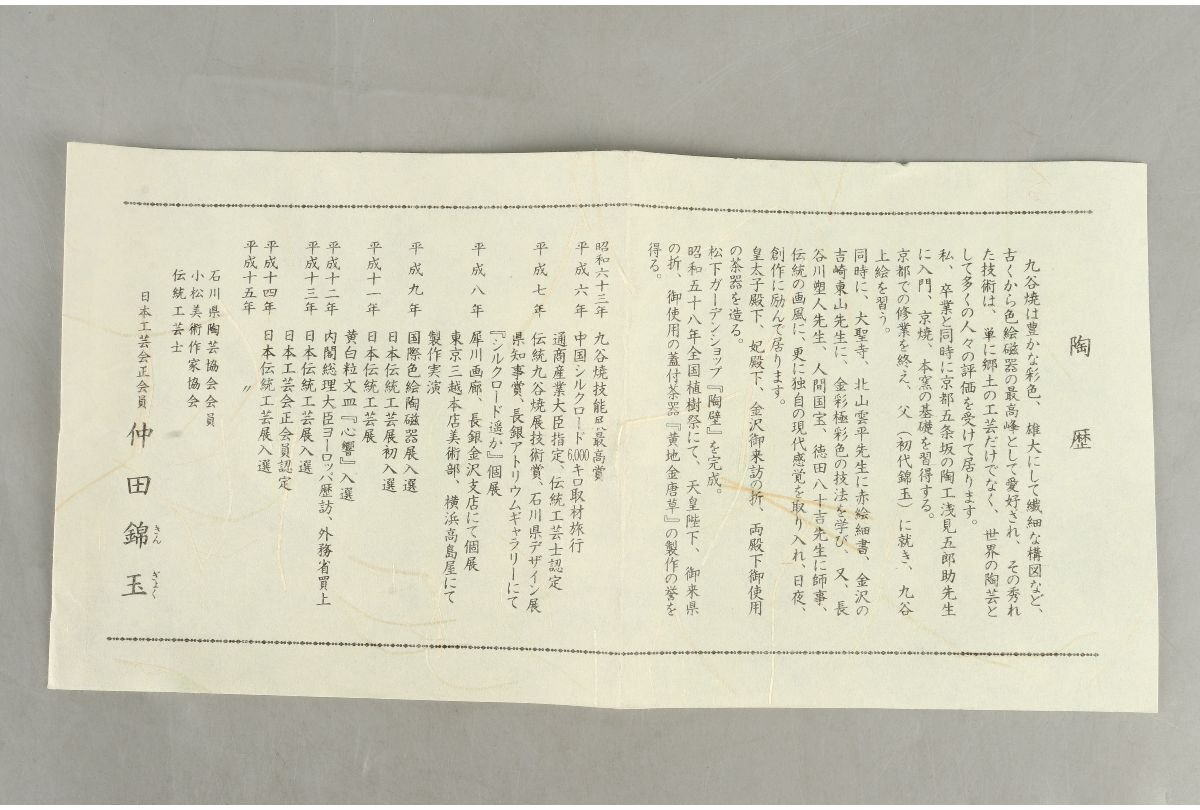 陶歴
九谷焼は豊かな彩色、雄大にして繊細な構図など、
古くから色絵磁器の最高峰として愛好され、その秀れ
た技術は、単に郷土の工芸だけでなく、世界の陶芸と
して多くの人々の評価を受けて居ります。
私、卒業と同時に京都五条坂の陶工浅見五郎助先生
に入門、京焼、本窯の基礎を習得する。
京都での修業を終え、父（初代錦玉）に就き、九谷
上絵を習う。
同時に、大聖寺、北山雲平先生に赤絵細書、金沢の
吉崎東山先生に、金彩極彩色の技法を学び、又、長
谷川塑人先生、人間国宝、徳田八十吉先生に師事、
伝統の画風に、更に独自の現代感覚を取り入れ、日夜、
創作に励んで居ります。
皇太子殿下、妃殿下、金沢御来訪の折、両殿下御使用
の茶器を造る。
松下ガーデンショップ『陶壁』を完成。
昭和五十八年全国植樹祭にて、天皇陛下、御来県
の折、御使用の蓋付茶器『黄地金唐草』の製作の誉を
得る。
昭和六十三年 九谷焼技能展最高賞
平成六年 中国シルクロード6,000キロ取材旅行
通商産業大臣指定、伝統工芸士認定
平成七年 伝統九谷焼展技術賞、石川県デザイン展
県知事賞、長銀アトリウムギャラリーにて
『シルクロード遥か』個展
平成八年 犀川画廊、長銀金沢支店にて個展
東京三越本店美術部、横浜高島屋にて
製作実演
平成九年 国際色絵陶磁器展入選
日本伝統工芸展初入選
平成十一年 日本伝統工芸展
黄白粒文皿『心響』入選
平成十二年 内閣総理大臣ヨーロッパ歴訪、外務省買上
平成十三年 日本伝統工芸展入選
日本工芸会正会員認定
平成十四年 日本伝統工芸展入選
平成十五年 〃
石川県陶芸協会会員
小松美術作家協会
伝統工芸士
日本工芸会正会員 仲田錦玉
きんぎょく